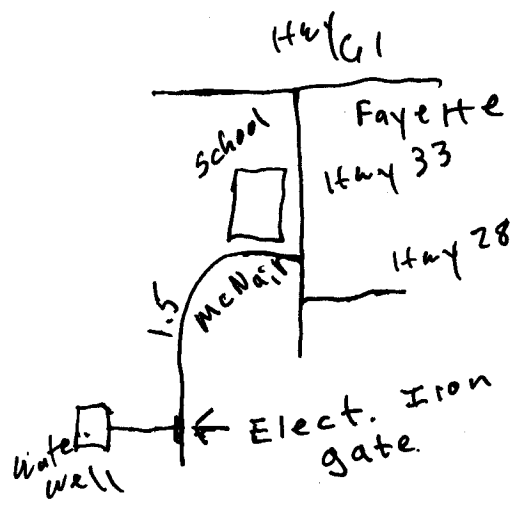 Hwy 61
Fayette
School
Hwy 33
Hwy 28
McNair
1.5
Elect. Iron
gate.
Water
well